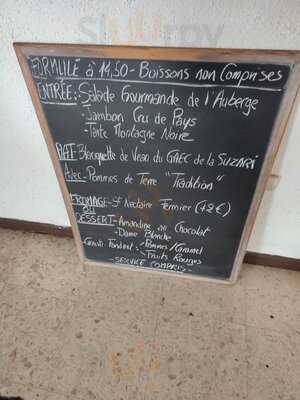 FORMULE à 14,50 - Boissons non Comprises
ENTRÉE: - Salade Gourmande de l'Auberge
- Jambon Cru de Pays
- Tarte Montagne Noire
PLAT - Blanquette de Veau du GAEC de la
Avec - Pommes de Terre "Tradition"
FROMAGE - St Nectaire Fermier (+2€)
OU
DESSERT - Amandine au Chocolat
- Dame Blanche
Fondant : - Pommes/Caramel
- Fruits Rouges
- SERVICE COMPRIS -